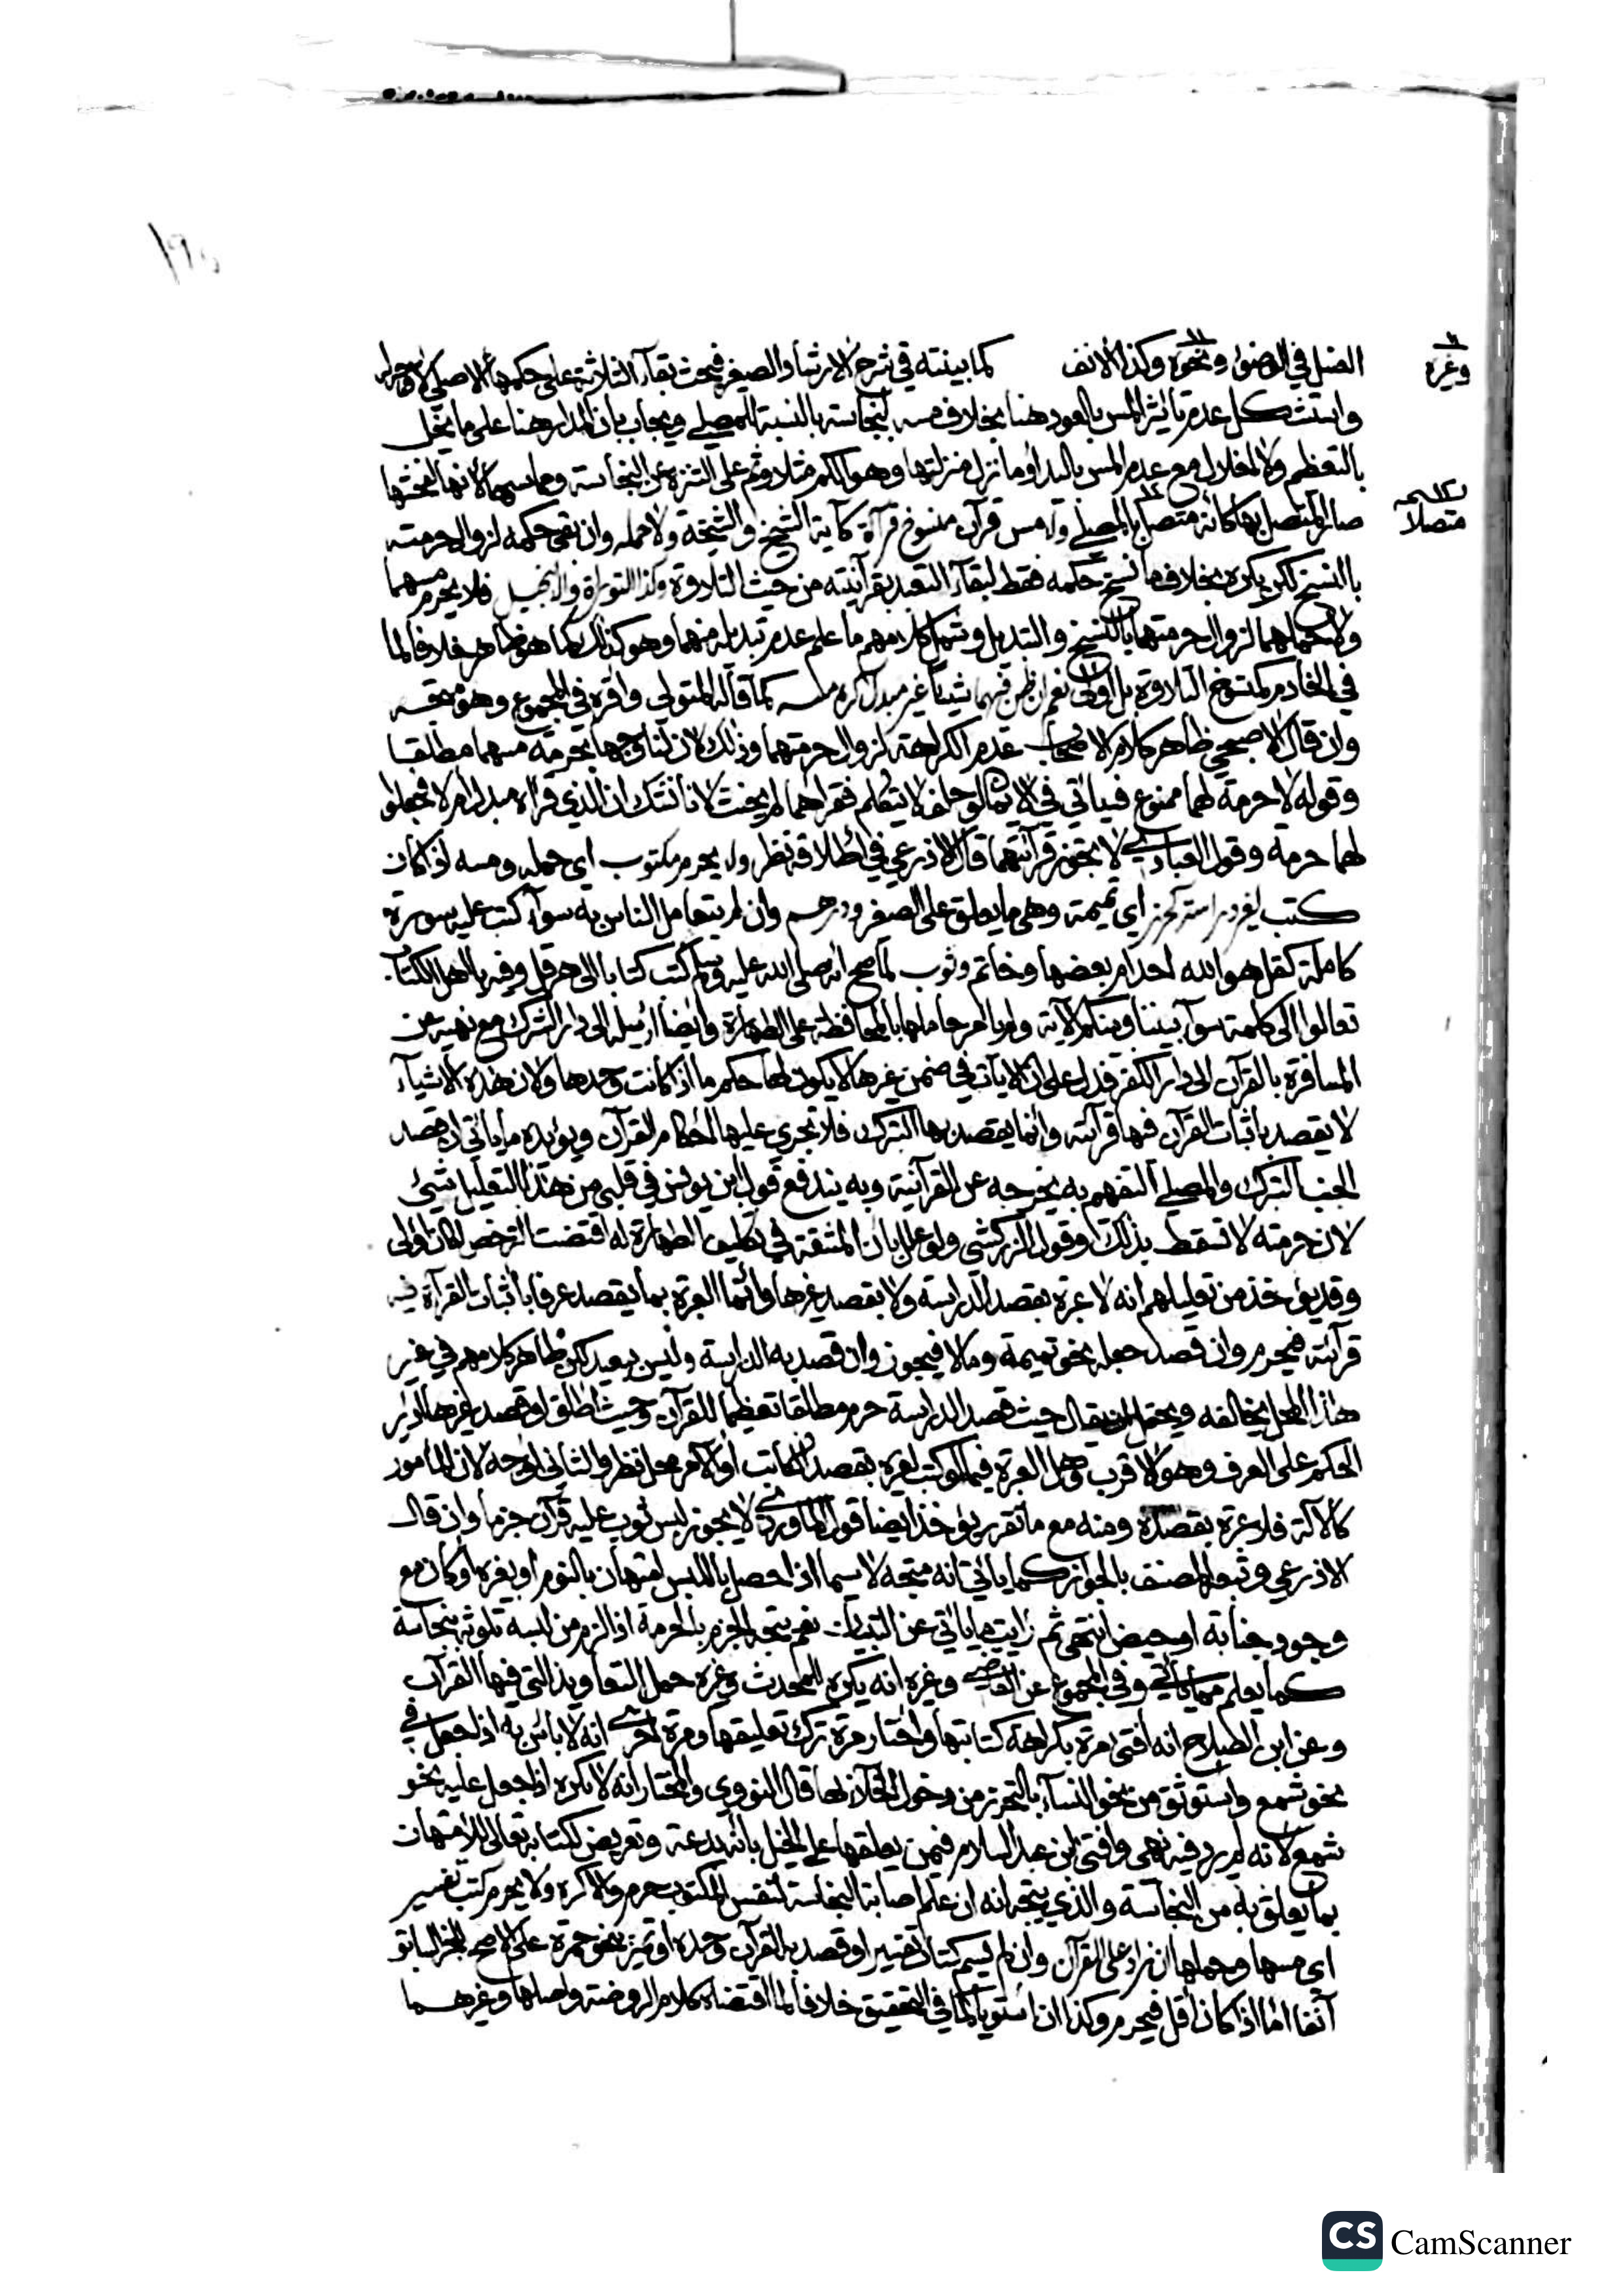 ١٩٥
وغيره
الغسل في الوضوء ونحوه وكذا الانف كما بينته في شرح الارشاد الصغير فبحث بقاء الثلاثة على حكمها الاصلي
واستشكل عدم تأثير المس بالعود هنا بخلاف مسه لنجاسة بالنسبة للمصلي ويجاب بان المدار هنا على ما يخل
بالتعظيم ولا اخلال مع عدم المس باليد او ما نزل منزلتها وهو الكم مثلا وثم على التنزه عن النجاسة ومماستها لانها لفحشها
متصلا
صار المتصل بها كانه متصل بالمصلي وله مس قرآن منسوخ قرآة كآية الشيخ والشيخة ولا حمله وان بقي حكمه لزوال حرمته
بالنسخ لكن يكره بخلاف ما نسخ حكمه فقط لبقاء التعبد بقرآنيته من حيث التلاوة وكذا التوراة والانجيل فلا يحرم مسهما
ولا حملهما لزوال حرمتهما بالنسخ والتبديل وشمل كلامهم ما علم عدم تبديله منهما وهو كذلك كما هو ظاهر خلافا لما
في الخادم كمنسوخ التلاوة بل اولى نعم ان ظن فيهما شيئا غير مبدل كره مسه كما قاله المتولي واقره في المجموع وهو متجه
وان قال الاصبحي ظاهر كلام الاصحاب عدم الكراهة لزوال حرمتهما وذلك لان لنا وجها بحرمة مسهما مطلقا
وقوله لا حرمة لهما ممنوع فسيأتي في الايمان لو حلف لا يتكلم فقراهما لم يحنث لانا نشك ان الذي قرأه مبدل ام لا فجعلوا
لهما حرمة وقول العبادي لا يجوز قرآتهما قال الاذرعي في اطلاقه نظر ولا يحرم مكتوب اي حمله ومسه لو كان
كتب لغير دراسة كحرز اي تميمة وهي ما يعلق على الصغير ودرهم وان لم يتعامل الناس به سوآء كتب عليه سورة
كاملة كقل هو الله احد ام بعضها وخاتم وثوب لما صح انه صلى الله عليه وسلم كتب كتابا الى هرقل وفيه يا اهل الكتاب
تعالوا الى كلمة سوآء بيننا وبينكم الآية ولم يامر حاملها بالمحافظة على الطهارة وايضا ارسله الى دار الشرك مع نهيه عن
المسافرة بالقرآن الى دار الكفر فدل على ان الايآت في ضمن غيرها لا يكون لها حكم ما اذا كانت وحدها ولان هذه الاشياء
لا يقصد باثبات القرآن فيها قرآنيته وانما يقصد بها التبرك فلا تجري عليها احكام القرآن ويؤيده ما يأتي ان قصد
الجنب التبرك والمصلي التفهيم به يخرجه عن القرآنية وبه يندفع قول ابن يونس في قلبي من هذا التعليل شيئ
لان حرمته لا تسقط بذلك وقول الزركشي ولو علل بان المشقة في تكليف الطهارة له اقتضت الترخص لكان اولى
وقد يؤخذ من تعليلهم انه لا عبرة بقصد الدراسة ولا بقصد غيرها وانما العبرة بما يقصد عرفا باثبات القرآن فيه
قرآنيته فيحرم وان قصد جعله نحو تميمة وما لا فيجوز وان قصد به الدراسة وليس ببعيد لكن ظاهر كلامهم في غير
هذا المحل يخالفه ويحتمل ان يقال حيث قصد الدراسة حرم مطلقا تعظيما للقرآن وحيث اطلق او قصد غيرها ادير
الحكم على العرف وهو الاقرب وهل العبرة فيما لو كتب لغيره بقصد الكاتب او الآمر محل نظر والثاني اوجه لان المأمور
كالآلة فلا عبرة بقصده ومنه مع ما تقرر يؤخذ ايضا قول الماوردي لا يجوز لبس ثوب عليه قرآن جزما وان قال
الاذرعي وتبعه المصنف بالجواز كما يأتي انه متجه لا سيما اذا حصل باللبس امتهان بالنوم او بغيره او كان مع
وجود جنابة او حيض انتهى ثم رايت ما يأتي عن التبيان نعم يتجه الجزم بالحرمة اذا لزم من لبسه تلوثه بنجاسة
كما يعلم مما يأتي وفي المجموع عن القاضي وغيره انه يكره للمحدث وغيره حمل التعاويذ التي فيها القرآن
وعن ابن الصلاح انه افتى مرة بكراهة كتابتها واختار مرة ترك تعليقها ومرة اخرى انه لا باس به اذا جعل في
نحو شمع واستوثق من نحو النساء بالتحرز من دخول الخلاء بها قال النووي والمختار انه لا يكره اذا جعل عليه نحو
شمع لانه لم يرد فيه نهي وافتى ابن عبد السلام فيمن يعلقها على الخيل بانه بدعة وتعريض لكتابه تعالى للامتهان
بما يعلق به من النجاسة والذي يتجه انه ان علم اصابة النجاسة لنفس المكتوب حرم والا كره ولا يحرم كتب تفسير
اي مسها وحملها ان زاد على القرآن وان لم يسم كتاب تفسير او قصد به القرآن وحده او تميز بنحو حمرة على الاصح للخبر السابق
آنفا اما اذا كان اقل فيحرم وكذا ان استويا كما في التحقيق خلافا لما اقتضاه كلام الروضة واصلها وغيرهما
CS CamScanner